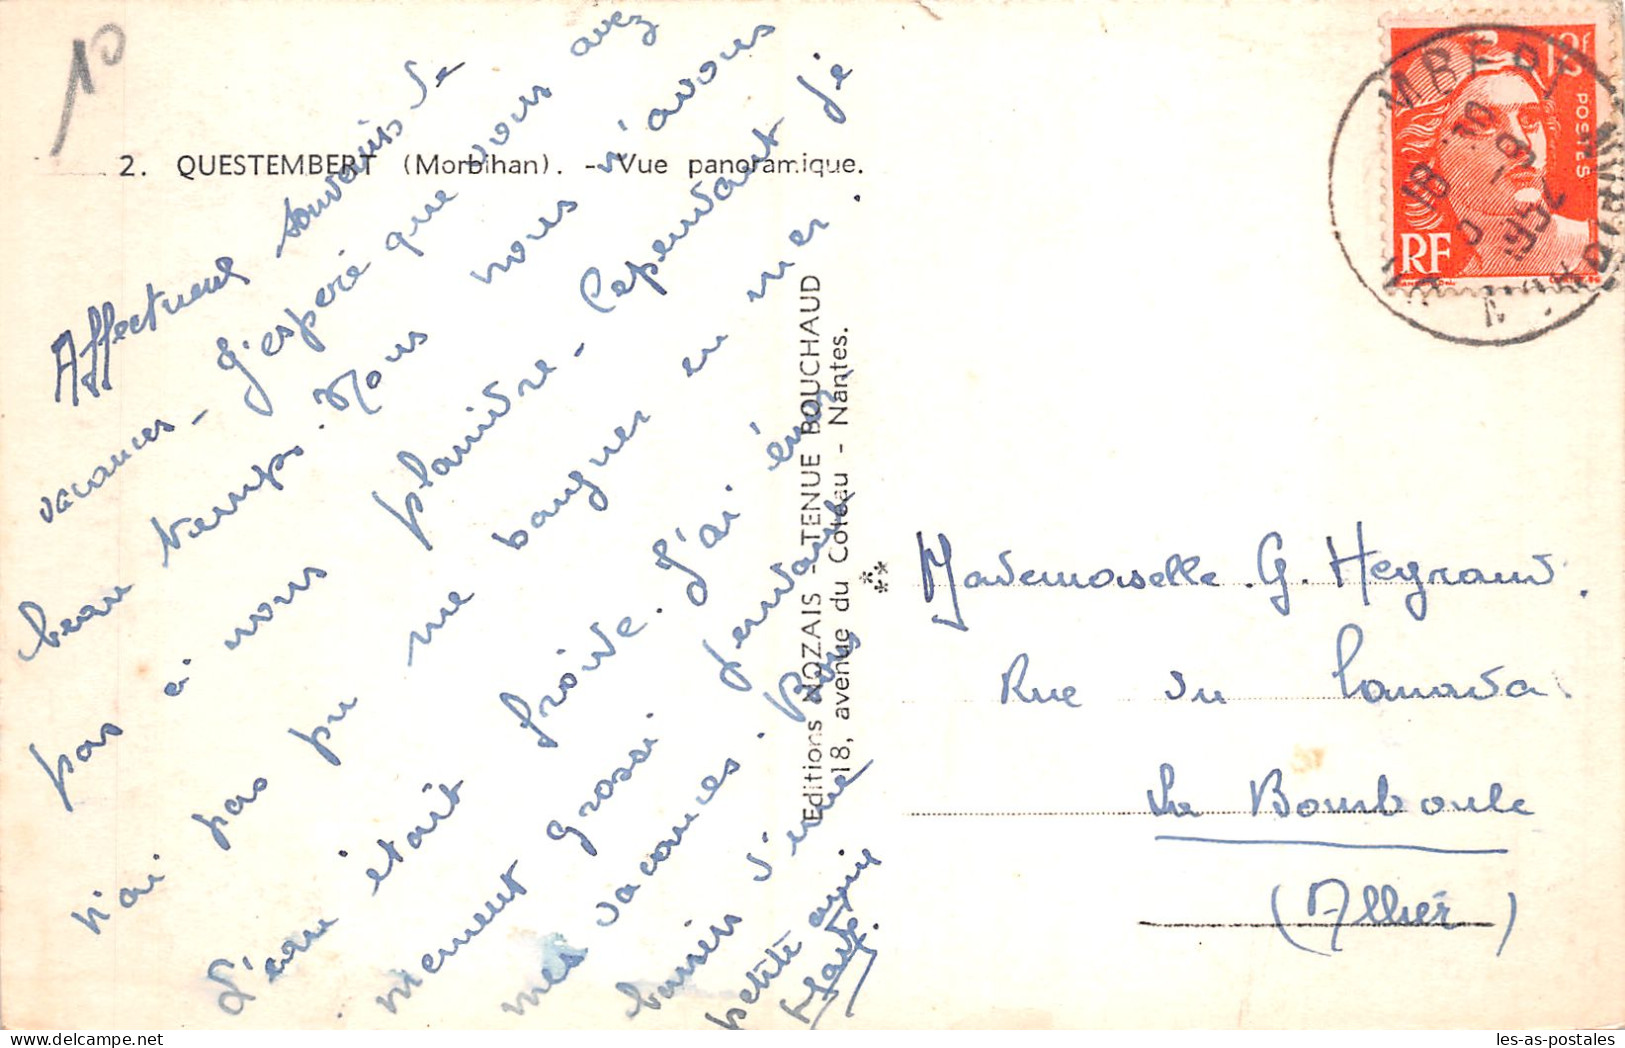 10
2. QUESTEMBERT (Morbihan). - Vue panoramique.
Affectueux souvenirs de
vacances - J'espère que vous avez
beau temps. Nous nous n'avons
pas à nous plaindre - Cependant je
n'ai pas pu me baigner en mer.
L'eau était froide. J'ai énor-
mement grossi pendant
mes vacances. Bons
baisers d'une
petite amie
Editions NOZAIS - TENUE BOUCHAUD
18, avenue du Coteau - Nantes.
13f
POSTES
RF
MBERT
18 10
8-9
1952
MORBIHAN
Mademoiselle G. Heyraud.
Rue du Canada.
La Bourboule
(Allier)
les-as-postales